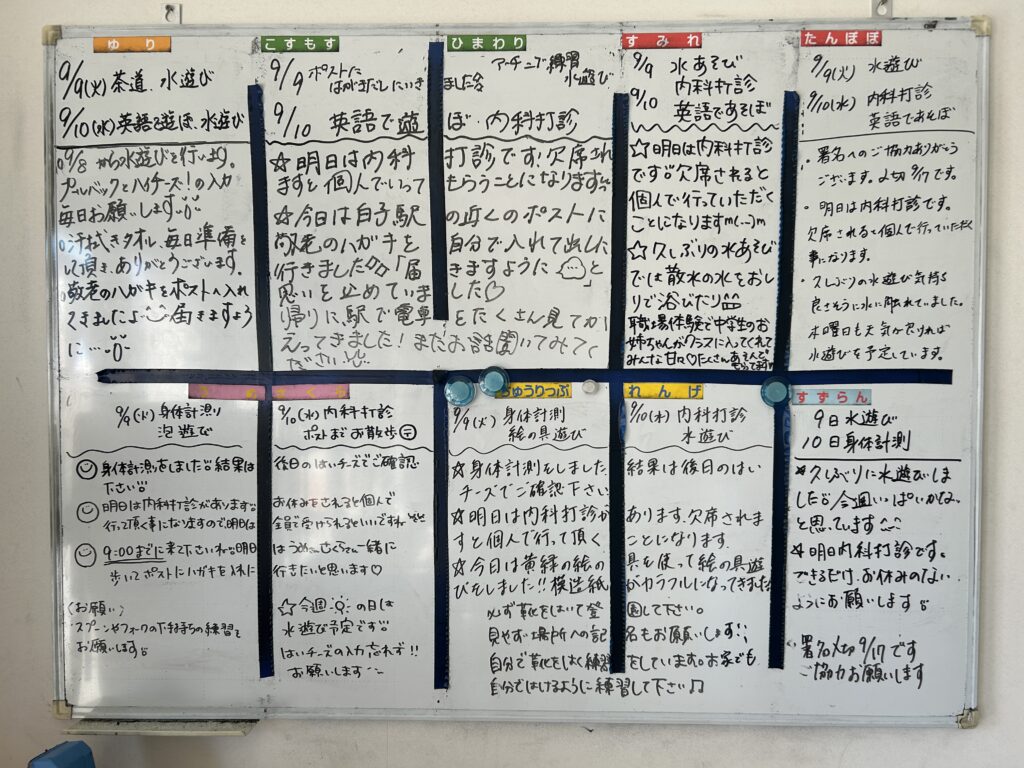 ゆり
9/9(火)茶道、水遊び
9/10(水)英語で遊ぼ、水遊び
9/8 から水遊びを行います。
プールバックとハイチーズ!の入力
毎日お願いします
汗拭きタオル、毎日準備を
して頂き、ありがとうございます。
敬老のハガキをポストへ入れ
てきましたよ 届きますよう
に…
こすもす ひまわり
9/9 ポストに アーチェリー練習
はがきだしにいきました 水遊び
9/10 英語で遊ぼ・内科打診
☆明日は内科打診です!欠席され
ますと個人でいってもらうことになります
☆今日は白子駅の近くのポストに
敬老のハガキを自分で入れて出しに
行きました 「届きますように」と
思いを止めていました♡
帰りに駅で電車をたくさん見てか
えってきました!またお話聞いてみてく
ださい
すみれ
9/9 水あそび
内科打診
9/10 英語であそぼ
☆明日は内科打診
です 欠席されると
個人で行っていただく
ことになりますm(..)m
☆久しぶりの水あそび
では散水の水をおし
りで浴びたり
職場体験で中学生のお
姉ちゃんがクラスに入ってくれて
みんな甘々♡たくさんあそんで
もらってます
たんぽぽ
9/9(火) 水遊び
9/10(水) 内科打診
英語であそぼ
・署名へのご協力ありがとう
ございます。〆切 9/17です。
・明日は内科打診です。
欠席されると個人で行っていただく
事になります。
・久しぶりの水遊び気持ち
良さそうに水に触れていました。
木曜日も天気が良ければ
水遊びを予定しています。
さくら
9/9(火)身体計測 9/10(水)内科打診
泡遊び ポストまでお散歩
身体計測をしました 結果は後日のはいチーズでご確認
下さい
明日は内科打診があります お休みをされると個人で
行って頂く事になりますので明日は全員で受けられるといいですね
9:00までに来て下さいね 明日はうめ・さくらさん一緒に
歩いてポストにハガキを入れに行きたいと思います♡
(お願い)
スプーンやフォークの下手持ちの練習を
お願いします
☆今週 の日は
水遊び予定です
はいチーズの入力忘れず!!
お願いします
ちゅうりっぷ れんげ
9/9(火) 身体計測 9/10(水) 内科打診
絵の具遊び 水遊び
☆身体計測をしました 結果は後日のはい
チーズでご確認下さい
☆明日は内科打診があります。欠席されま
すと個人で行って頂くことになります。
☆今日は黄緑の絵の具を使って絵の具遊
びをしました!!模造紙がカラフルになってきました
必ず靴をはいて登園して下さい。
見やすい場所への記名もお願いします
自分で靴をはく練習をしています。お家でも
自分ではけるように練習して下さい♫
すずらん
9日 水遊び
10日 身体計測
★久しぶりに水遊びしま
した 今週いっぱいかな、
と思っています
★明日内科打診です。
できるだけ、お休みのない
ようにお願いします
署名〆切 9/17 です
ご協力お願いします